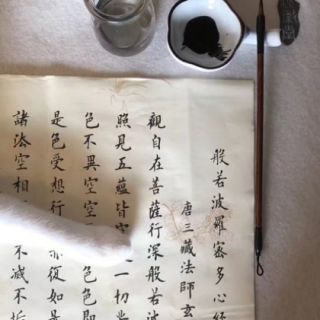 般若波羅密多心經
唐三藏法師玄
觀自在菩薩行深般若波
照見五蘊皆空 一切
色不異空空 色色即
是色受想行 亦復如是
諸法空相 不滅不垢